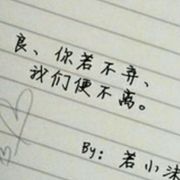 良、你若不弃、
我们便不离。
By：若小沫